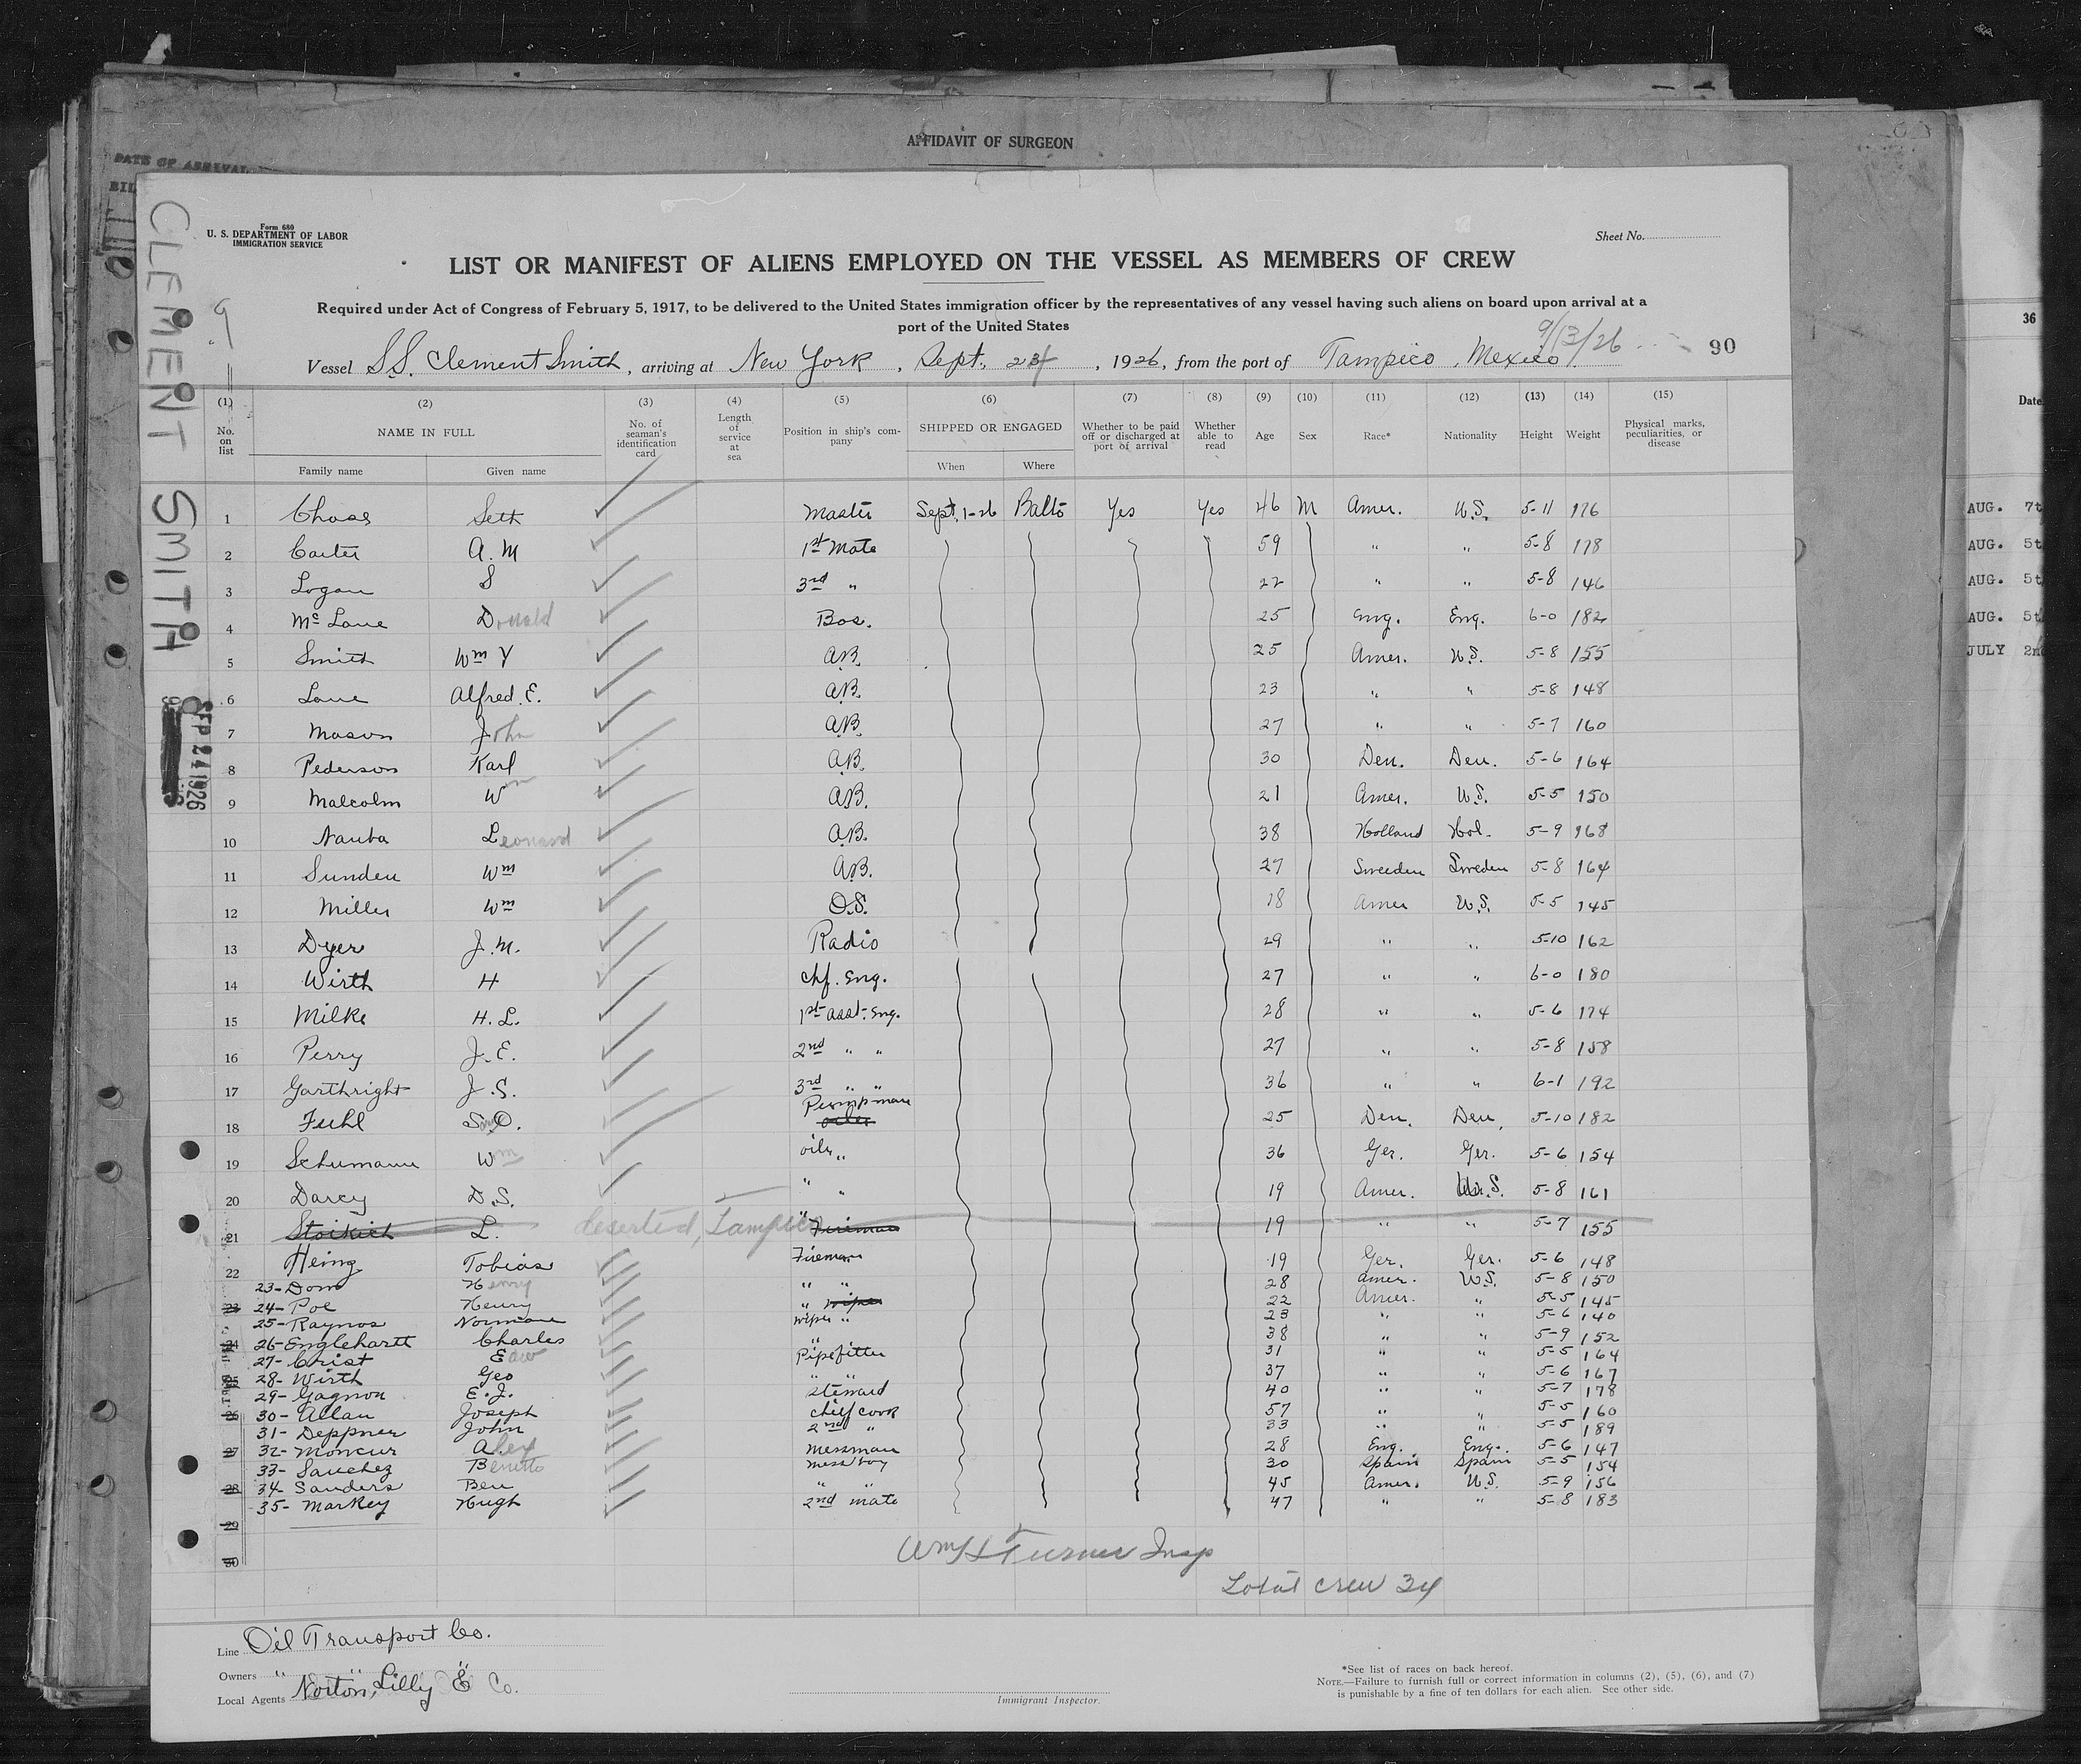 AFFIDAVIT OF SURGEON
DATE OF ARRIVAL
CLEMENT SMITH
SEP 24 1926
Form 680
U. S. DEPARTMENT OF LABOR
IMMIGRATION SERVICE
Sheet No.
LIST OR MANIFEST OF ALIENS EMPLOYED ON THE VESSEL AS MEMBERS OF CREW
Required under Act of Congress of February 5, 1917, to be delivered to the United States immigration officer by the representatives of any vessel having such aliens on board upon arrival at a
port of the United States
9/13/26
90
Vessel S.S. Clement Smith, arriving at New York, Sept. 24, 1926, from the port of Tampico, Mexico.
(1) (2) (3) (4) (5) (6) (7) (8) (9) (10) (11) (12) (13) (14) (15)
No. on list NAME IN FULL No. of seaman's identification card Length of service at sea Position in ship's company SHIPPED OR ENGAGED Whether to be paid off or discharged at port of arrival Whether able to read Age Sex Race* Nationality Height Weight Physical marks, peculiarities, or disease
Family name Given name When Where
1 Chase Seth Master Sept. 1-26 Balto Yes Yes 46 M Amer. U.S. 5-11 176
2 Carter A. M 1st Mate 59 " " 5-8 178
3 Logan S 3rd " 22 " " 5-8 146
4 McLane Donald Bos. 25 Eng. Eng. 6-0 182
5 Smith Wm Y A.B. 25 Amer. U.S. 5-8 155
6 Lane Alfred E. A.B. 23 " " 5-8 148
7 Mason John A.B. 27 " " 5-7 160
8 Pederson Karl A.B. 30 Den. Den. 5-6 164
9 Malcolm Wm A.B. 21 Amer. U.S. 5-5 150
10 Nauta Leonard A.B. 38 Holland Hol. 5-9 168
11 Sunden Wm A.B. 27 Sweeden Sweden 5-8 164
12 Miller Wm O.S. 18 Amer U.S. 5-5 145
13 Dyer J. M. Radio 29 " " 5-10 162
14 Wirth H Chf. Eng. 27 " " 6-0 180
15 Milke H. L. 1st asst. Eng. 28 " " 5-6 174
16 Perry J. E. 2nd " " 27 " " 5-8 158
17 Garthright J. S. 3rd " " 36 " " 6-1 192
18 Fuhl S. O. Pumpman oiler 25 Den. Den. 5-10 182
19 Schumann Wm oiler " 36 Ger. Ger. 5-6 154
20 Darcy D. S. " " 19 Amer. U.S. 5-8 161
21 Stoikich L. deserted, Tampico " Fireman 19 " " 5-7 155
22 Heing Tobias Fireman 19 Ger. Ger. 5-6 148
23- Dom Henry " " 28 Amer. U.S. 5-8 150
23 24- Poe Henry " wiper 22 Amer. " 5-5 145
25- Raynos Normane wiper " 23 " " 5-6 140
24 26- Englehartt Charles " 38 " " 5-9 152
27- Crist Edw Pipefitter 31 " " 5-5 164
25 28- Wirth Geo " " 37 " " 5-6 167
29- Gagnon E. J. Steward 40 " " 5-7 178
26 30- Allan Joseph Chief cook 57 " " 5-5 160
31- Deppner John 2nd " 33 " " 5-5 189
27 32- Moncur Alex Messman 28 Eng. Eng. 5-6 147
33- Sanchez Benitto Messboy 30 Spain Spain 5-5 154
28 34- Sanders Ben " " 45 Amer. U.S. 5-9 156
35- Markey Hugh 2nd mate 47 " " 5-8 183
29
30
Wm H Turner Insp
Total crew 34
Line Oil Transport Co.
Owners " " "
Local Agents Norton, Lilly & Co.
Immigrant Inspector.
*See list of races on back hereof.
NOTE.—Failure to furnish full or correct information in columns (2), (5), (6), and (7)
is punishable by a fine of ten dollars for each alien. See other side.
36
Date
AUG. 7t
AUG. 5t
AUG. 5t
AUG. 5t
JULY 2n